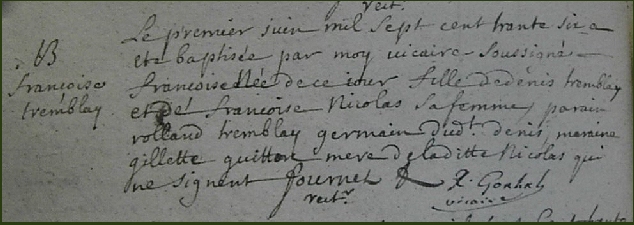 rect.
B
françoise
tremblay
Le premier juin mil sept cent trante six a
ete baptisée par moy vicaire soussigné
françoise Née de ce iour fille de denis tremblay
et de françoise Nicolas sa femme, parain
rolland tremblay germain dudt. denis, maraine
gillette quitton mere de laditte Nicolas qui
ne signent fournet
rectr.
vicaire